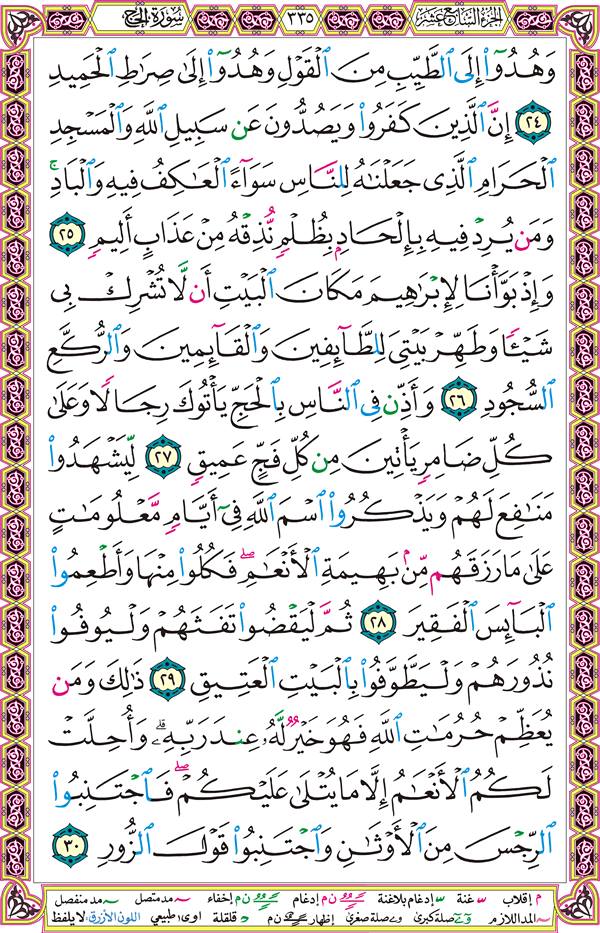 الجزء السابع عشر ٣٣٥ سورة الحج
وَهُدُوٓا۟ إِلَى ٱلطَّيِّبِ مِنَ ٱلْقَوْلِ وَهُدُوٓا۟ إِلَىٰ صِرَٰطِ ٱلْحَمِيدِ
٢٤ إِنَّ ٱلَّذِينَ كَفَرُوا۟ وَيَصُدُّونَ عَن سَبِيلِ ٱللَّهِ وَٱلْمَسْجِدِ
ٱلْحَرَامِ ٱلَّذِى جَعَلْنَٰهُ لِلنَّاسِ سَوَآءً ٱلْعَٰكِفُ فِيهِ وَٱلْبَادِ ۚ
وَمَن يُرِدْ فِيهِ بِإِلْحَادٍۭ بِظُلْمٍ نُّذِقْهُ مِنْ عَذَابٍ أَلِيمٍ ٢٥
وَإِذْ بَوَّأْنَا لِإِبْرَٰهِيمَ مَكَانَ ٱلْبَيْتِ أَن لَّا تُشْرِكْ بِى
شَيْـًٔا وَطَهِّرْ بَيْتِىَ لِلطَّآئِفِينَ وَٱلْقَآئِمِينَ وَٱلرُّكَّعِ
ٱلسُّجُودِ ٢٦ وَأَذِّن فِى ٱلنَّاسِ بِٱلْحَجِّ يَأْتُوكَ رِجَالًا وَعَلَىٰ
كُلِّ ضَامِرٍ يَأْتِينَ مِن كُلِّ فَجٍّ عَمِيقٍ ٢٧ لِّيَشْهَدُوا۟
مَنَٰفِعَ لَهُمْ وَيَذْكُرُوا۟ ٱسْمَ ٱللَّهِ فِىٓ أَيَّامٍ مَّعْلُومَٰتٍ
عَلَىٰ مَا رَزَقَهُم مِّنۢ بَهِيمَةِ ٱلْأَنْعَٰمِ ۖ فَكُلُوا۟ مِنْهَا وَأَطْعِمُوا۟
ٱلْبَآئِسَ ٱلْفَقِيرَ ٢٨ ثُمَّ لْيَقْضُوا۟ تَفَثَهُمْ وَلْيُوفُوا۟
نُذُورَهُمْ وَلْيَطَّوَّفُوا۟ بِٱلْبَيْتِ ٱلْعَتِيقِ ٢٩ ذَٰلِكَ وَمَن
يُعَظِّمْ حُرُمَٰتِ ٱللَّهِ فَهُوَ خَيْرٌ لَّهُۥ عِندَ رَبِّهِۦ ۗ وَأُحِلَّتْ
لَكُمُ ٱلْأَنْعَٰمُ إِلَّا مَا يُتْلَىٰ عَلَيْكُمْ ۖ فَٱجْتَنِبُوا۟
ٱلرِّجْسَ مِنَ ٱلْأَوْثَٰنِ وَٱجْتَنِبُوا۟ قَوْلَ ٱلزُّورِ ٣٠
م إقلاب س غنة س إدغام بلاغنة ن م إدغام ن م إخفاء ~ مد متصل ~ مد منفصل
~ المد اللازم و ے صلة كبرى و ے صلة صغرى إظهار ن م د قلقلة اوى طبيعي اللون الأزرق: لا يلفظ